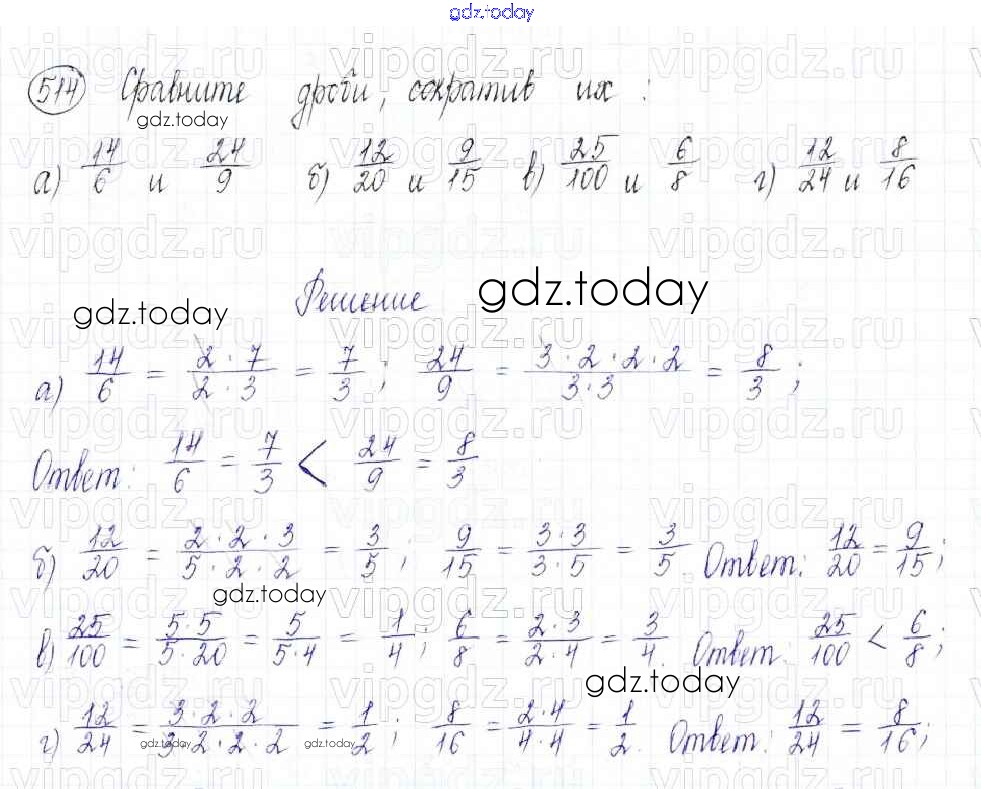 gdz.today
514 Сравните дроби, сократив их:
gdz.today
а) 14/6 и 24/9 б) 12/20 и 9/15 в) 25/100 и 6/8 г) 12/24 и 8/16
Решение gdz.today
gdz.today
а) 14/6 = 2·7/2·3 = 7/3; 24/9 = 3·2·2·2/3·3 = 8/3;
Ответ: 14/6 = 7/3 < 24/9 = 8/3
б) 12/20 = 2·2·3/5·2·2 = 3/5; 9/15 = 3·3/3·5 = 3/5. Ответ: 12/20 = 9/15;
gdz.today
в) 25/100 = 5·5/5·20 = 5/5·4 = 1/4; 6/8 = 2·3/2·4 = 3/4. Ответ: 25/100 < 6/8;
gdz.today
г) 12/24 = 3·2·2/3·2·2·2 = 1/2; 8/16 = 2·4/4·4 = 1/2. Ответ: 12/24 = 8/16;
gdz.today gdz.today
vipgdz.ru vipgdz.ru vipgdz.ru